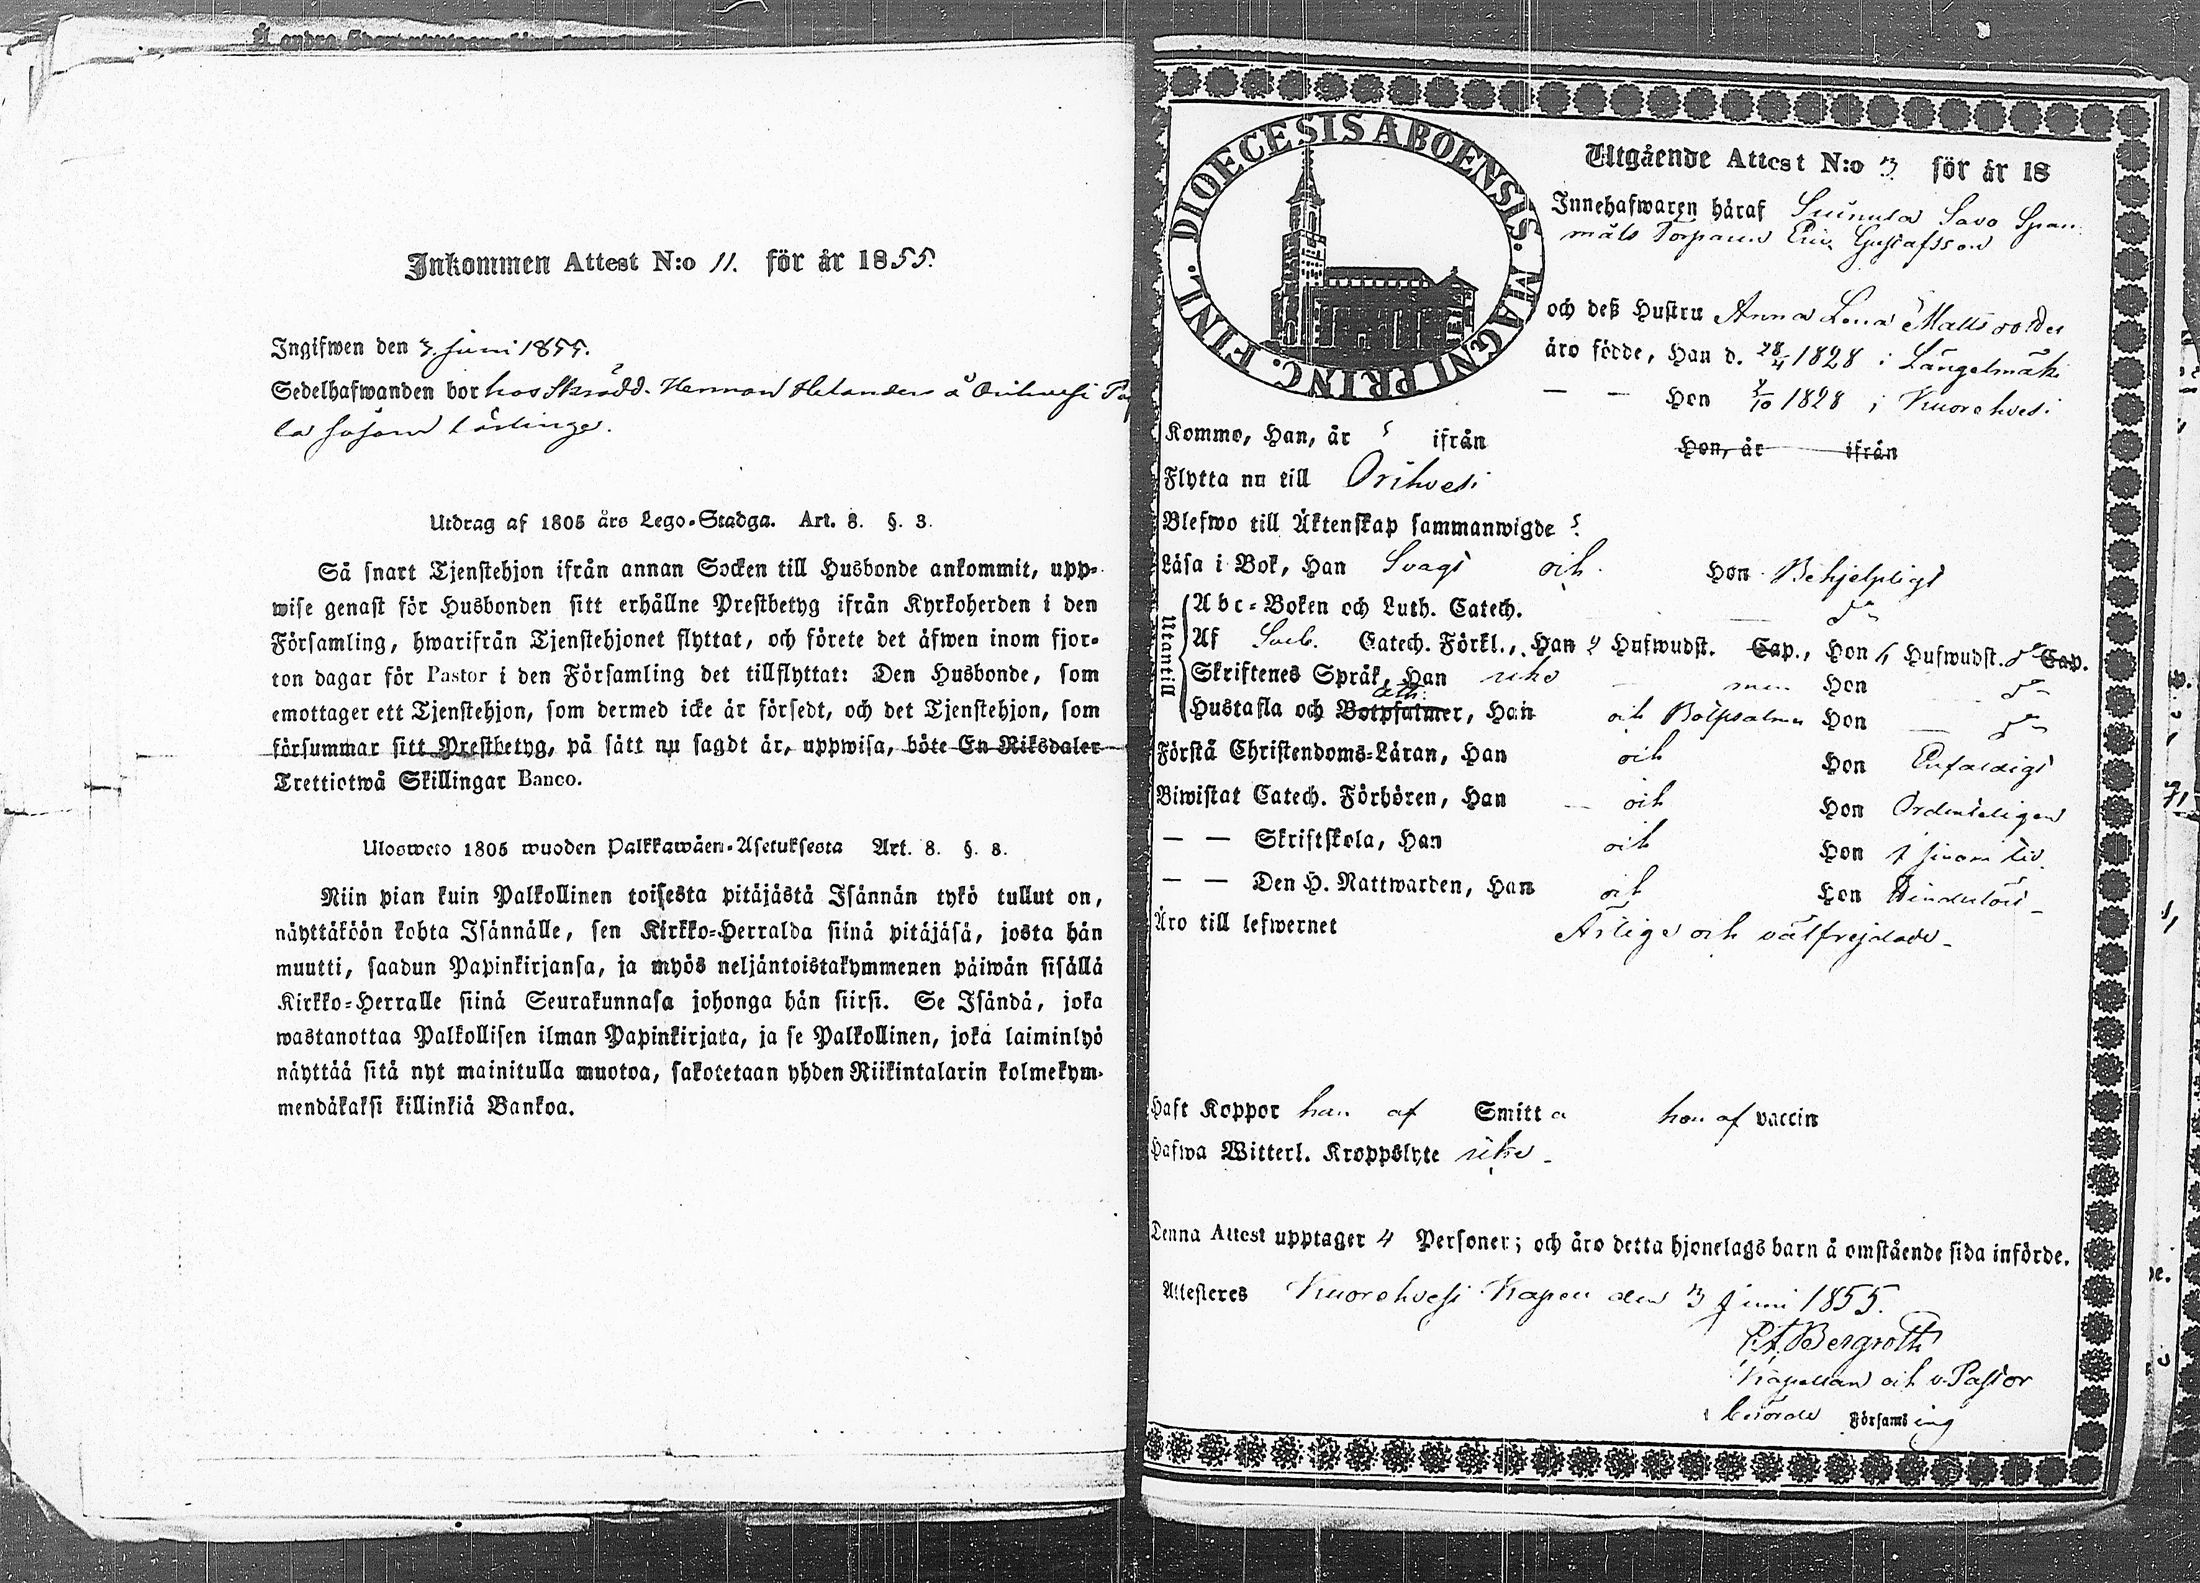 Inkommen Attest N:o 11. för år 1855.
Ingifwen den 3. juni 1855.
Sedelhafwanden bor hos Skrädd. Herman Helander å Orihvesi
la såsom
Utdrag af 1805 års Lego-Stadga. Art. 8. §. 3.
Så snart Tjenstehjon ifrån annan Socken till Husbonde ankommit, upp-
wise genast för Husbonden sitt erhållne Prestbetyg ifrån Kyrkoherden i den
Församling, hwarifrån Tjenstehjonet flyttat, och förete det äfwen inom fjor-
ton dagar för Pastor i den Församling det tillflyttat: Den Husbonde, som
emottager ett Tjenstehjon, som dermed icke är försedt, och det Tjenstehjon, som
försummar sitt Prestbetyg, på sätt nu sagdt är, uppwisa, böte En Riksdaler
Trettiotwå Skillingar Banco.
Ulosweto 1805 wuoden Palkkawäen-Asetuksesta Art. 8. §. 8.
Niin pian kuin Palkollinen toisesta pitäjästä Isännän tykö tullut on,
näyttäköön kohta Isännälle, sen Kirkko-Herralda siinä pitäjäsä, josta hän
muutti, saadun Papinkirjansa, ja myös neljäntoistakymmenen päiwän sisällä
Kirkko-Herralle siinä Seurakunnasa johonga hän siirsi. Se Isändä, joka
wastanottaa Palkollisen ilman Papinkirjata, ja se Palkollinen, joka laiminlyö
näyttää sitä nyt mainitulla muotoa, sakotetaan yhden Riikintalarin kolmekym-
mendäkaksi killinkiä Bankoa.
DIOECESIS ABOENSIS. MAGNI PRINC. FINL.
Utgående Attest N:o 3 för år 18
Innehafwaren häraf Savo Span
måls Torparen Eric Gustafsson
och deß Hustru Anna Lena Mattsdotter
äro födde, Han d. 28/4 1828 i Längelmäki
— — Hon 2/10 1828 i Kuorehvesi
Kommo, Han, år ifrån Hon, år ifrån
Flytta nu till Orihvesi
Blefwo till Äktenskap sammanwigde
Läsa i Bok, Han Svagt och Hon Behjelpligt
Utantill
Abc-Boken och Luth. Catech. do
Af Sveb. Catech. Förkl., Han 4 Hufwudst. Cap., Hon Hufwudst. Cap.
Skriftenes Språk, Han icke men Hon do
Hustafla och Botpsalmer, Han och Botpsalmer Hon do
Förstå Christendoms-Läran, Han och Hon Enfaldigt
Biwistat Catech. Förhören, Han och Hon Ordenteligen
— — Skriftskola, Han och Hon
— — Den H. Nattwarden, Han och Hon Hinderlöst
Äro till lefwernet Ärlige och välfrejdade
Haft Koppor han af Smitta hon af vaccin
Hafwa Witterl. Kroppslyte icke
Denna Attest upptager 4 Personer; och äro detta hjonelags barn å omstående sida införde.
Attesteras Kuorehvesi Kapell den 3 Juni 1855.
Bergroth
Kapellan och v. Pastor
i berörde Församling